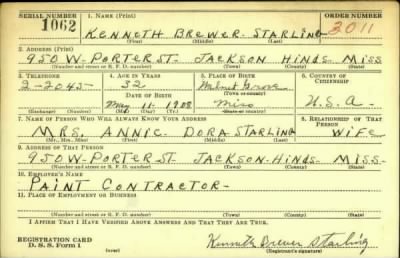 SERIAL NUMBER 1. NAME (Print) ORDER NUMBER
1062 KENNETH BREWER STARLING 3011
(First) (Middle) (Last)
2. ADDRESS (Print)
950 W-PORTER ST- JACKSON HINDS MISS
(Number and street or R. F. D. number) (Town) (County) (State)
3. TELEPHONE 4. AGE IN YEARS 5. PLACE OF BIRTH 6. COUNTRY OF CITIZENSHIP
2-2045- 32 Walnut Grove
DATE OF BIRTH (Town or county)
May 11- 1908 Miss U.S.A-
(Exchange) (Number) (Mo.) (Day) (Yr.) (State or country)
7. NAME OF PERSON WHO WILL ALWAYS KNOW YOUR ADDRESS 8. RELATIONSHIP OF THAT PERSON
MRS. ANNIE DORA STARLING WIFE
(Mr., Mrs., Miss) (First) (Middle) (Last)
9. ADDRESS OF THAT PERSON
950 W-PORTER ST- JACKSON-HINDS- MISS-
(Number and street or R. F. D. number) (Town) (County) (State)
10. EMPLOYER'S NAME
PAINT CONTRACTOR-
11. PLACE OF EMPLOYMENT OR BUSINESS
(Number and street or R. F. D. number) (Town) (County) (State)
I AFFIRM THAT I HAVE VERIFIED ABOVE ANSWERS AND THAT THEY ARE TRUE.
REGISTRATION CARD
D. S. S. Form 1 (over) Kenneth Brewer Starling
(Registrant's signature)